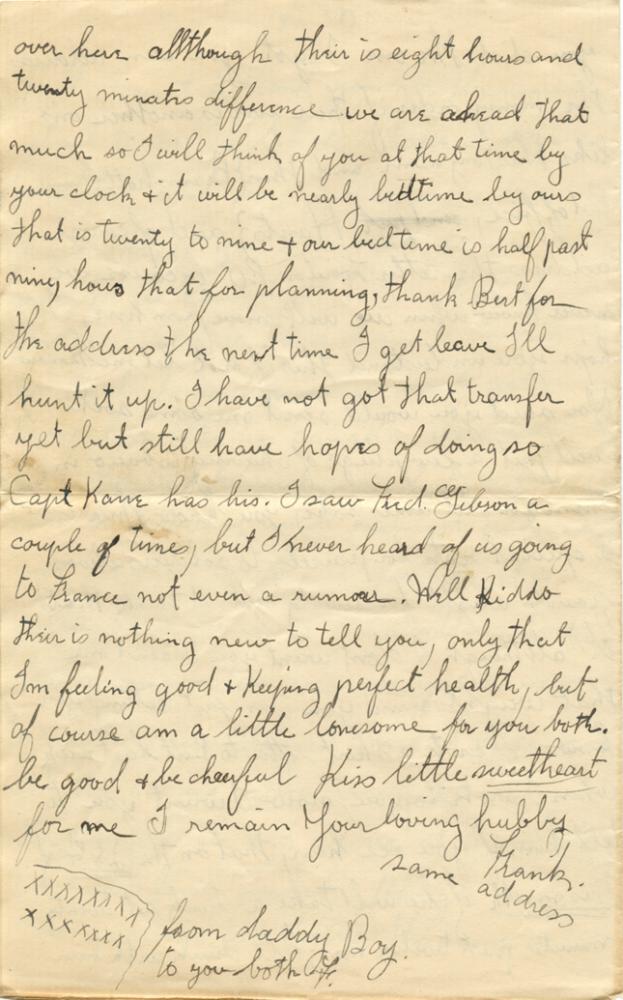 over here allthough their is eight hours and
twenty minates difference we are ahead that
much so I will think of you at that time by
your clock + it will be nearly bedtime by ours
that is twenty to nine + our bedtime is half past
nine, hows that for planning, thank Bert for
the address the next time I get leave I'll
hunt it up. I have not got that transfer
yet but still have hopes of doing so
Capt Kane has his. I saw Fred. Gibson a
couple of times, but I never heard of us going
to France not even a rumour. Well Kiddo
their is nothing new to tell you, only that
Im feeling good + Keeping perfect health, but
of course am a little lonesome for you both.
be good + be cheerful Kiss little sweetheart
for me I remain Your loving hubby
Frank.
same address
xxxxxxxx
xxxxxxx
from daddy Boy.
to you both F.